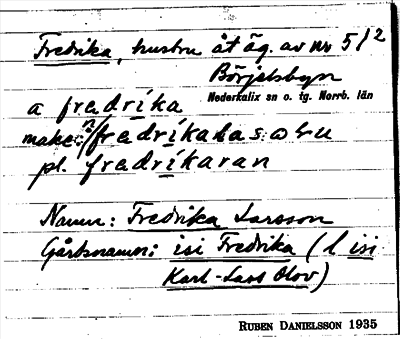 Fredrika, hustru åt äg. av nr 5/2
Börjelsbyn
Nederkalix sn o. tg. Norrb. län
a fredrika
make: n/ fredrikakas:
pl. fredrikaran
Namn: Fredrika Larsson
Gårdsnamn: isi Fredrika (l isi
Karl-Lars Olov)
RUBEN DANIELSSON 1935